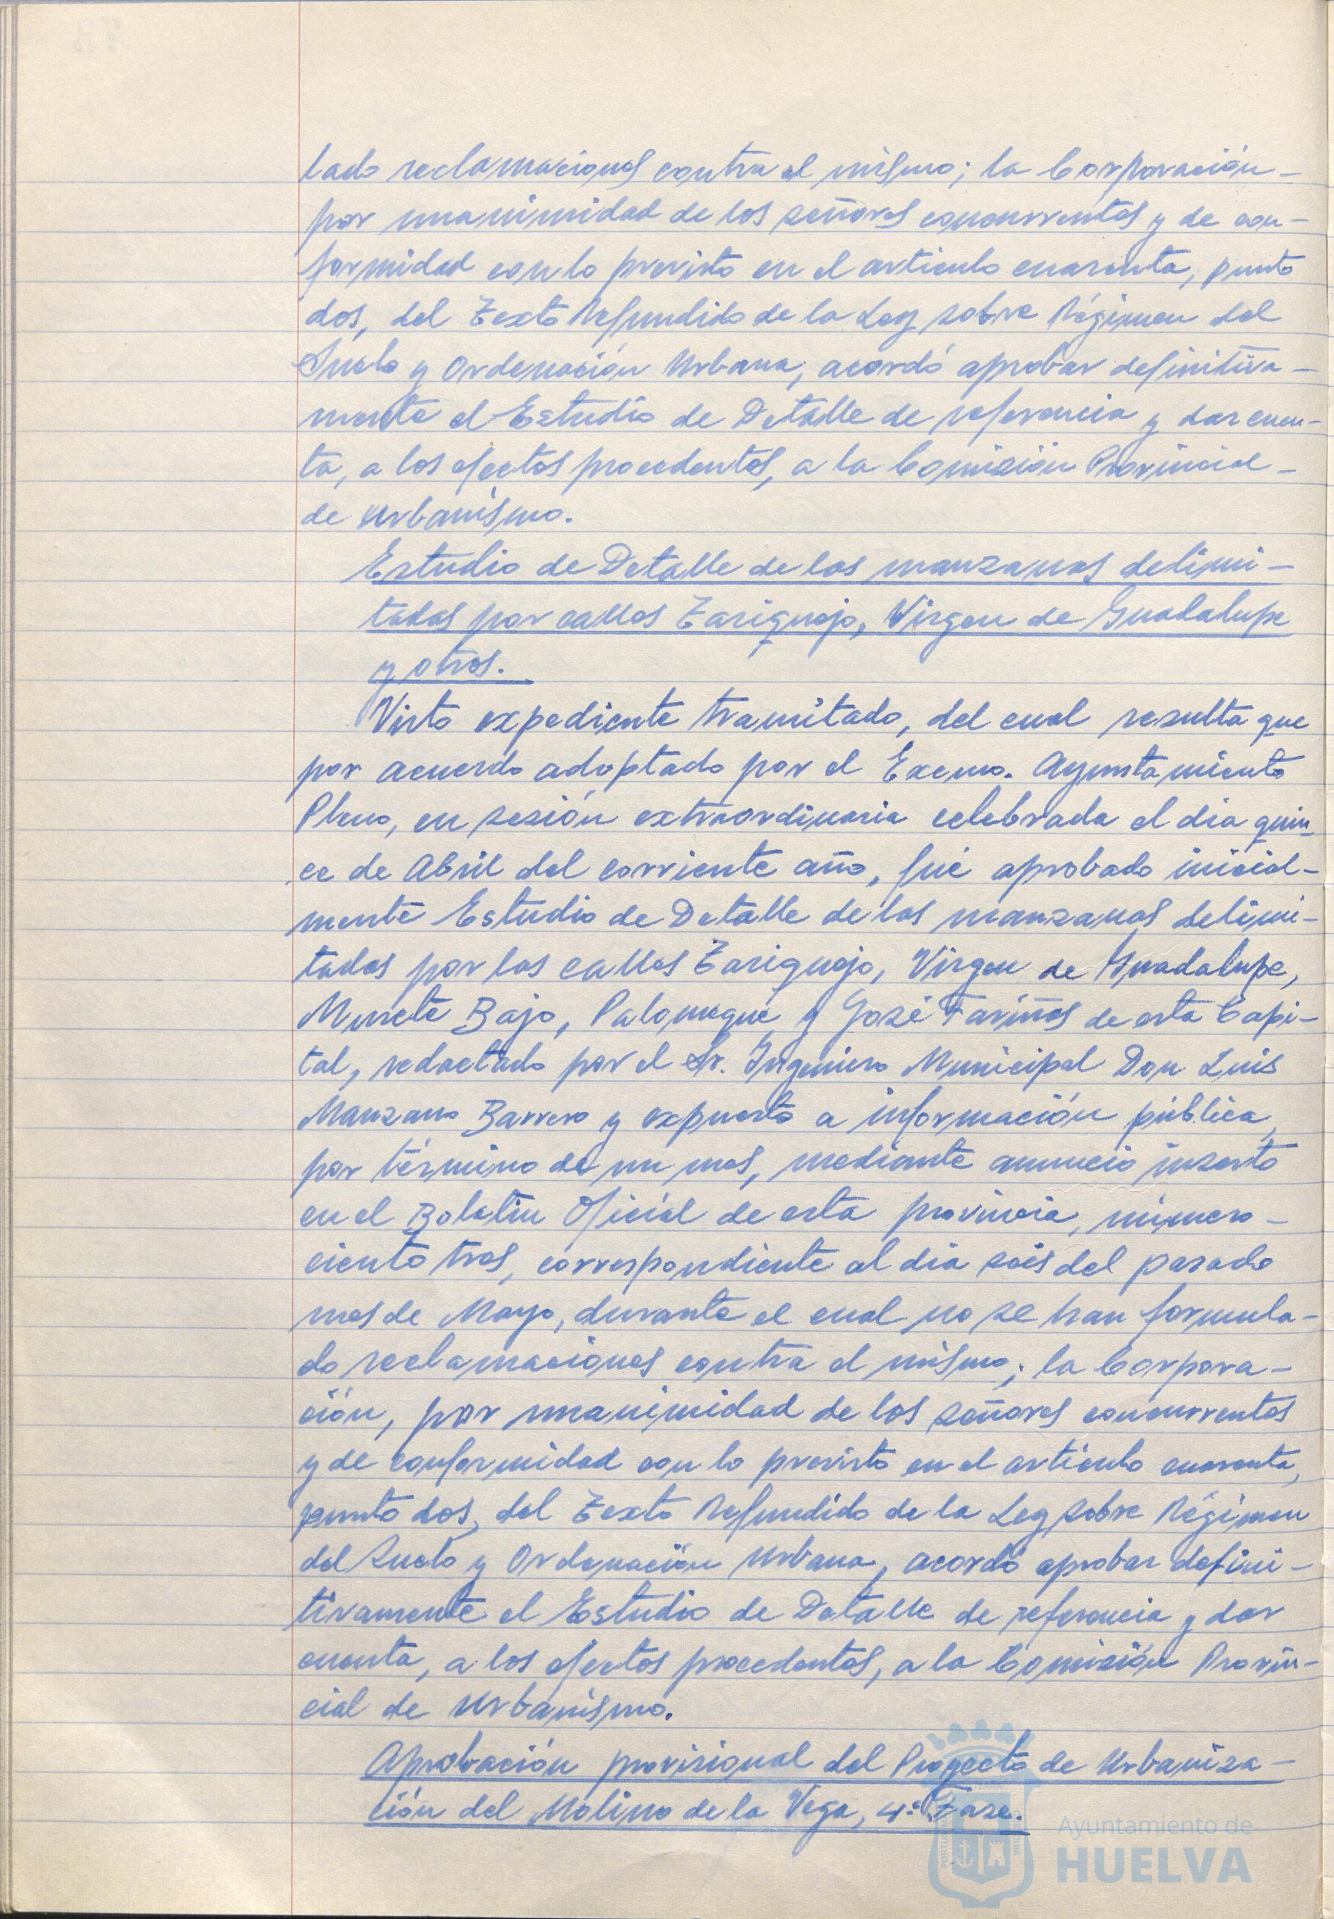 lado reclamaciones contra el mismo; la Corporación—
por unanimidad de los señores concurrentes y de con—
formidad con lo previsto en el artículo cuarenta, punto
dos, del Texto Refundido de la Ley sobre Régimen del
Suelo y Ordenación Urbana, acordó aprobar definitiva—
mente el Estudio de Detalle de referencia y dar cuen-
ta, a los efectos procedentes, a la Comisión Provincial—
de Urbanismo.
Estudio de Detalle de las manzanas delimi—
tadas por calles Zariquejo, Virgen de Guadalupe
y otras.
Visto expediente tramitado, del cual resulta que
por acuerdo adoptado por el Excmo. Ayuntamiento
Pleno, en sesión extraordinaria celebrada el día quin-
ce de Abril del corriente año, fué aprobado inicial-
mente Estudio de Detalle de las manzanas delimi-
tadas por las calles Zariquejo, Virgen de Guadalupe,
Murete Bajo, Palomeque y José Fariñas de esta Capi-
tal, redactado por el Sr. Ingeniero Municipal Don Luis
Manzano Barrero y expuesto a información pública,
por término de un mes, mediante anuncio inserto
en el Boletín Oficial de esta provincia, número—
ciento tres, correspondiente al día seis del pasado
mes de Mayo, durante el cual no se han formula-
do reclamaciones contra el mismo; la Corpora—
ción, por unanimidad de los señores concurrentes
y de conformidad con lo previsto en el artículo cuarenta,
punto dos, del Texto Refundido de la Ley sobre Régimen
del Suelo y Ordenación Urbana, acordó aprobar defini-
tivamente el Estudio de Detalle de referencia y dar
cuenta, a los efectos procedentes, a la Comisión Provin-
cial de Urbanismo.
Aprobación provisional del Proyecto de Urbaniza—
ción del Molino de la Vega, 4ª Fase.
Ayuntamiento de
HUELVA